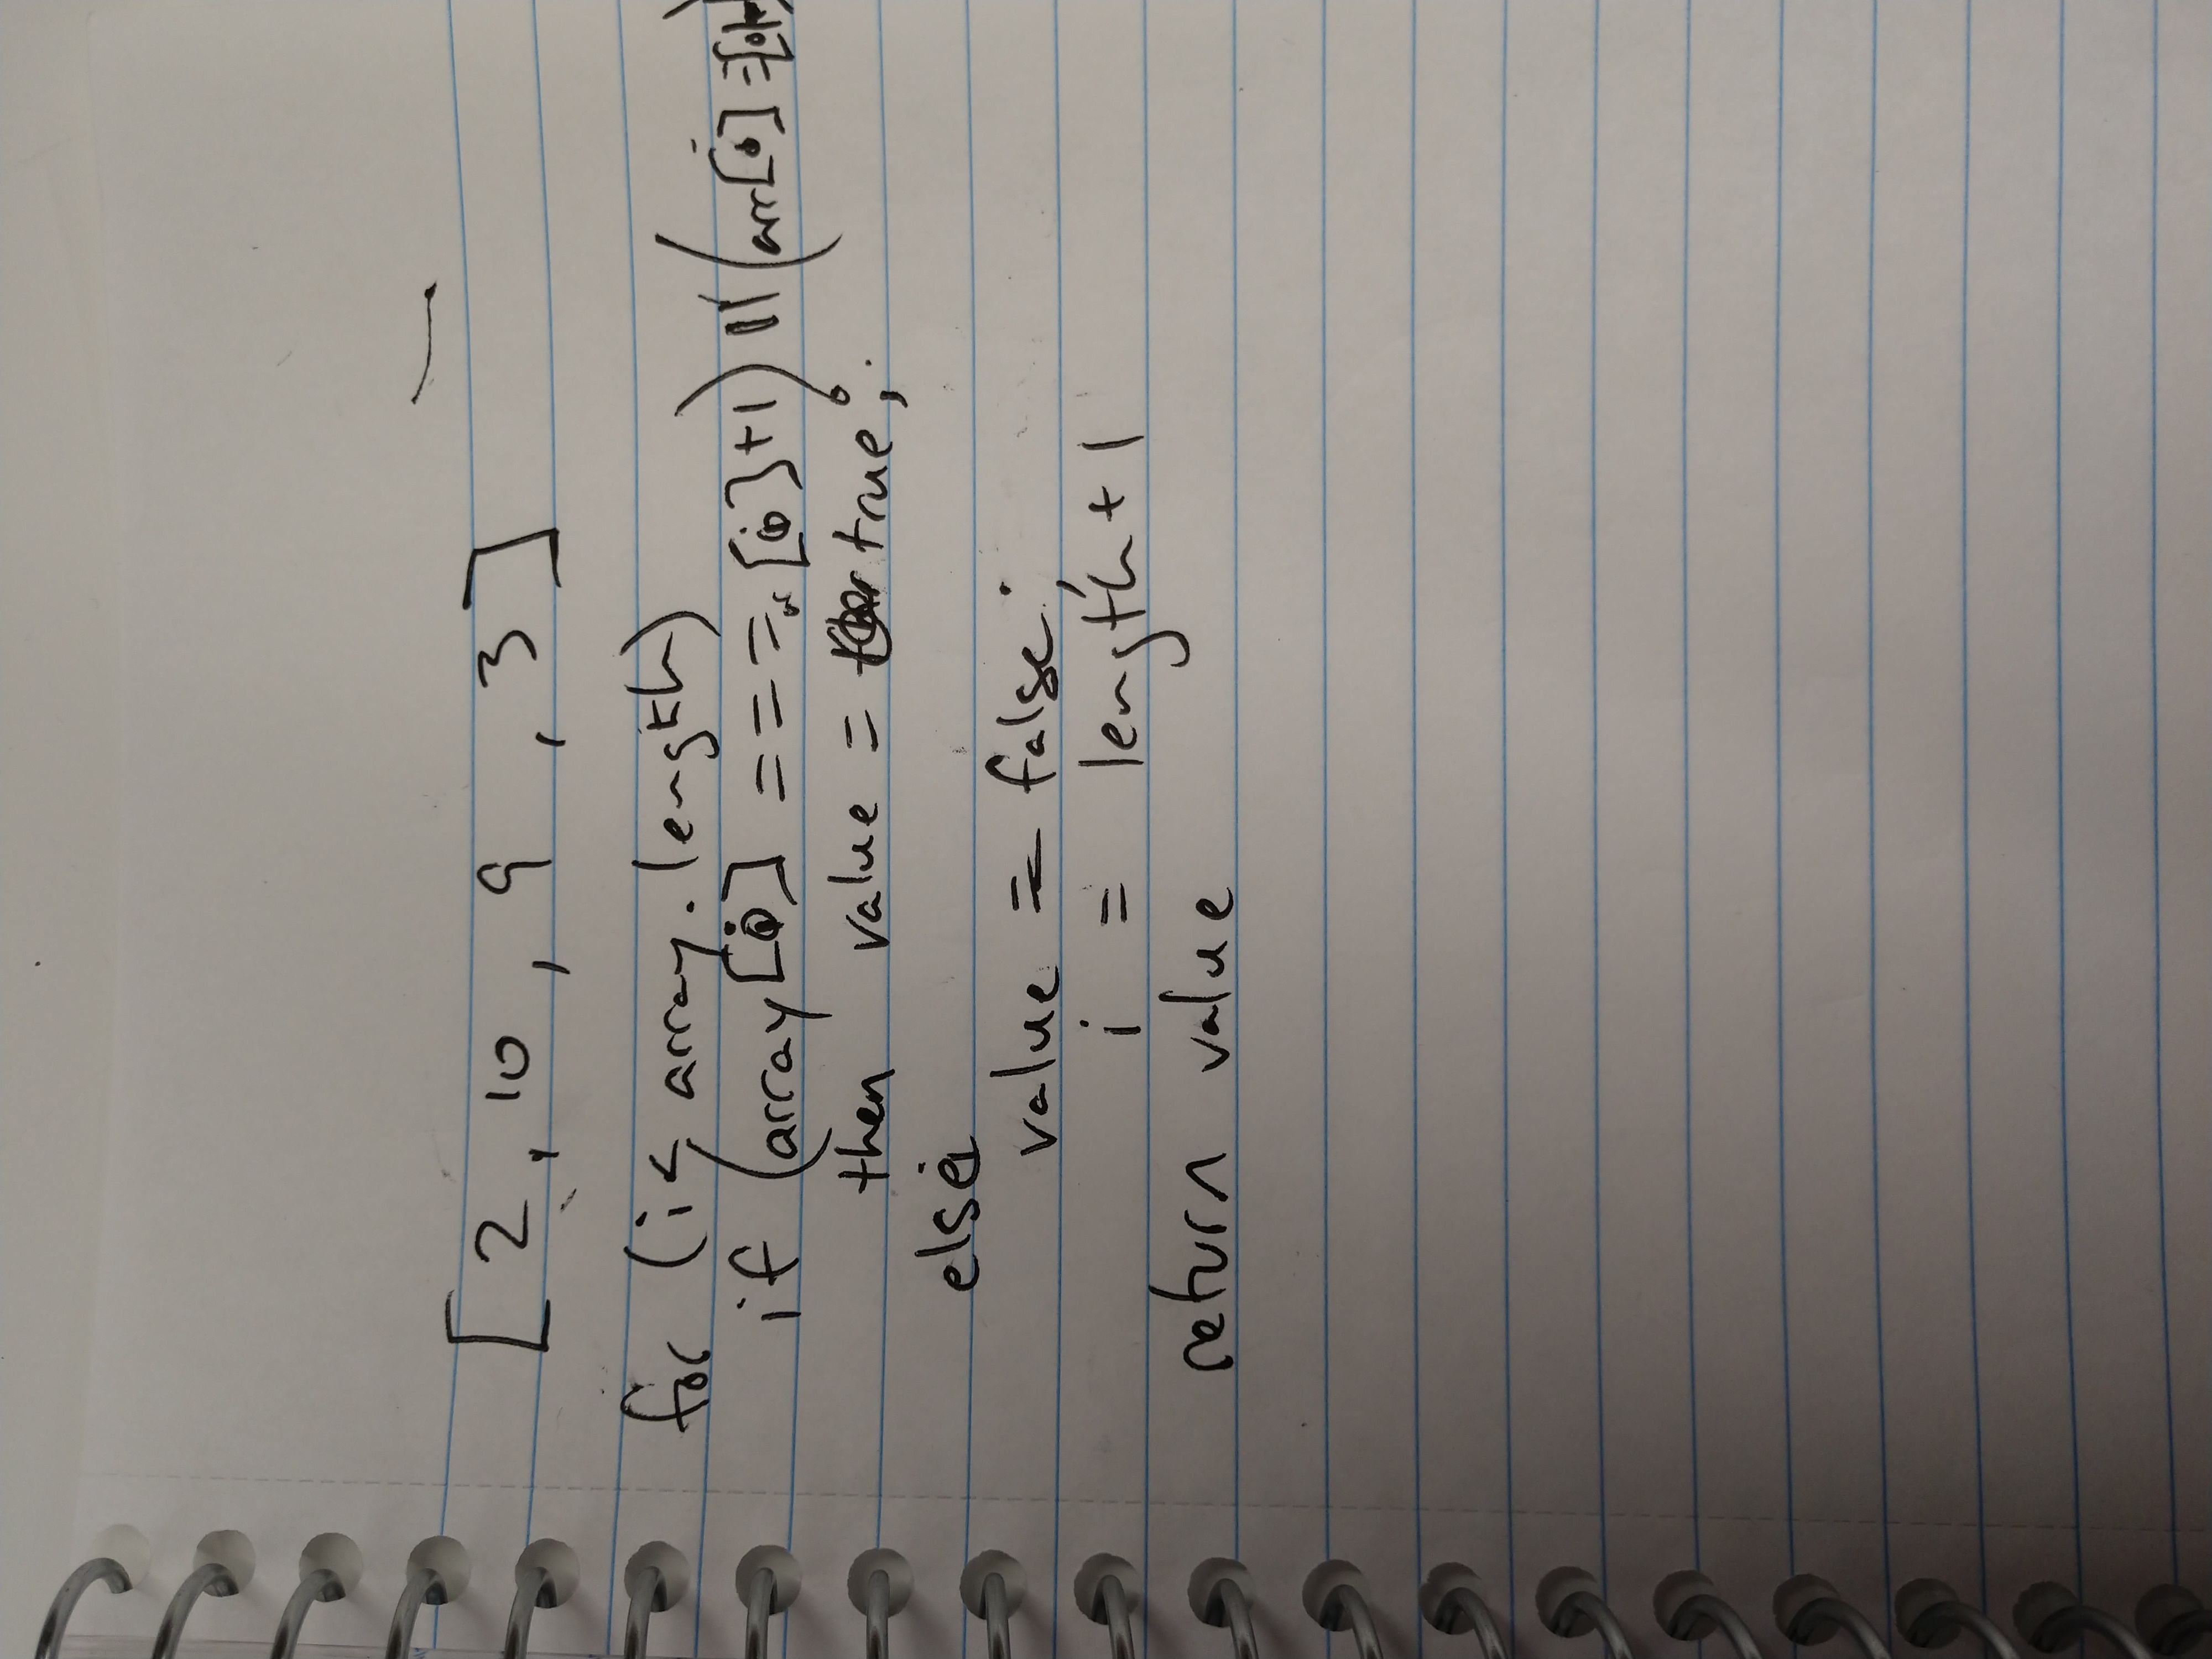 [ 2, 10, 9, 3 ]
for (i < array.length)
if (array[i] === [i]+1) || (arr[i] =
then value = true;
else
value = false;
i = length + 1
return value